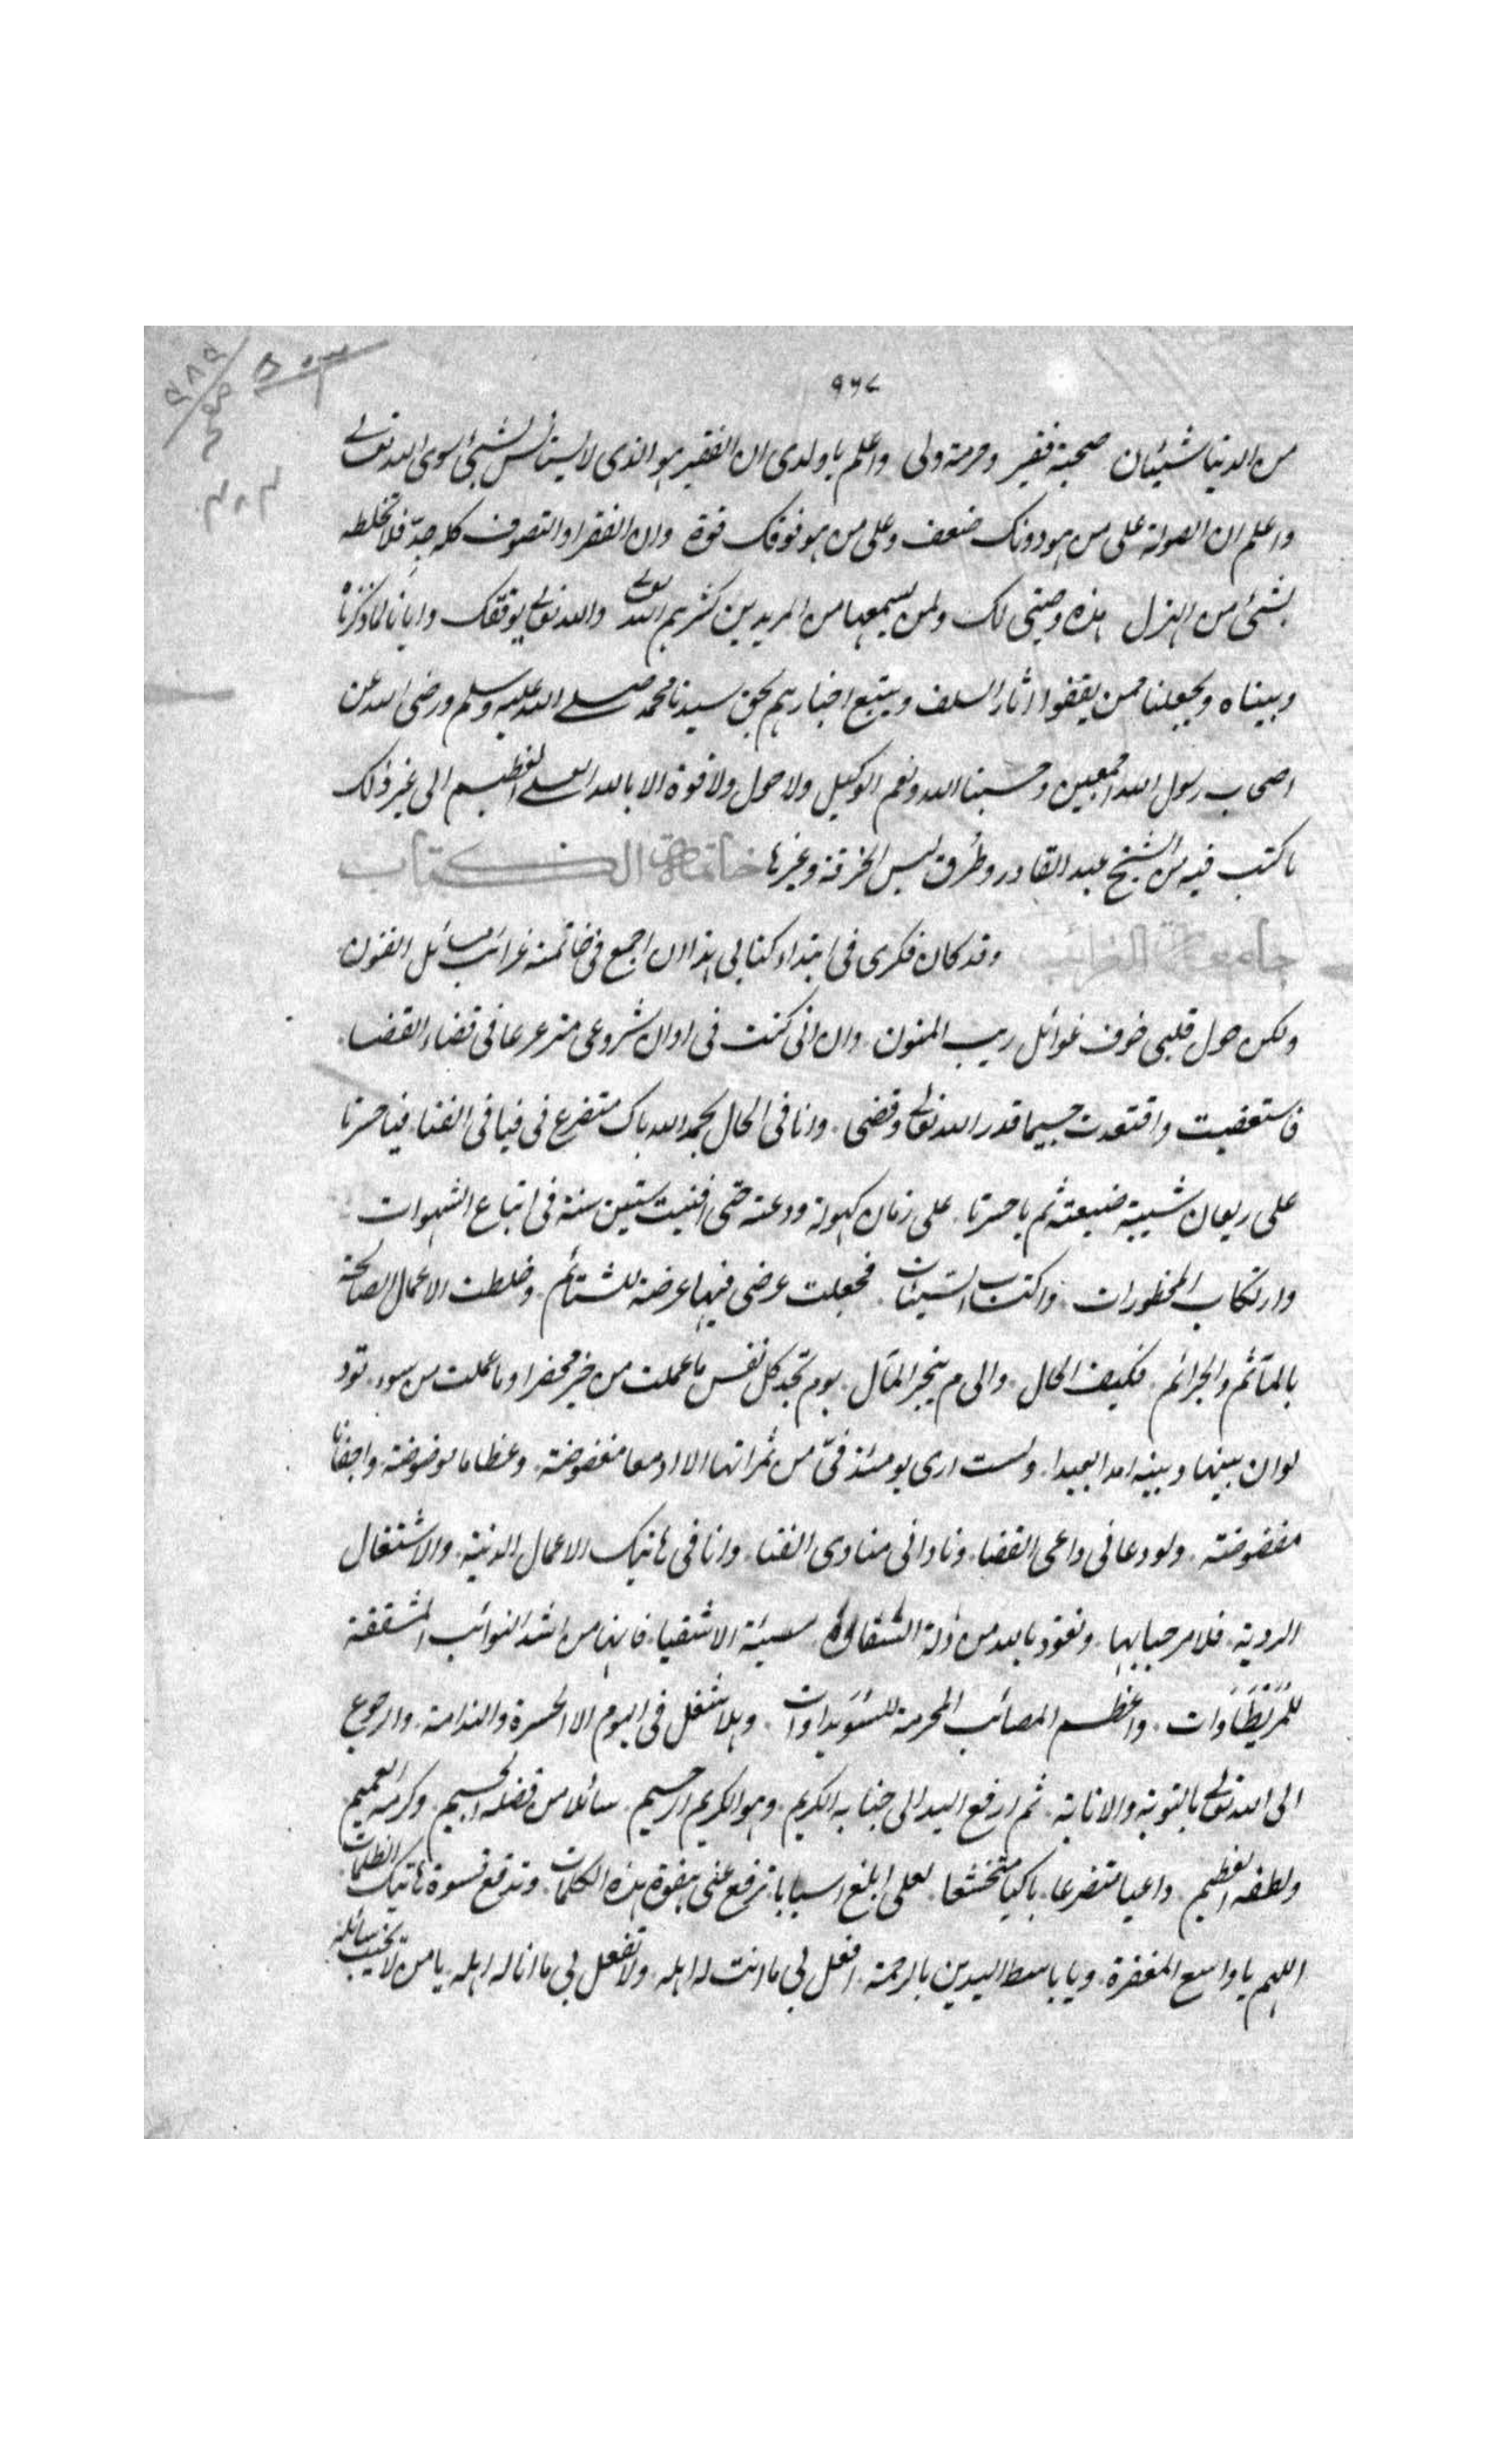 ٩٦٧
من الدنيا شيئان صحبة فقير وحرمة ولى واعلم يا ولدى ان الفقير هو الذى لا يستانس بشئ سوى الله تعالى
واعلم ان الصولة على من هو دونك ضعف وعلى من هو فوقك قوة وان الفقر والتصوف كله جدّ فلا تخلطه
بشئ من الهزل هذه وصيتى لك ولمن يسمعها من المريدين كثرهم الله تعالى والله تعالى يوفقك وايانا لما ذكرناه
وبيناه ويجعلنا ممن يقفوا اثار السلف ويتبع اخبارهم بحق سيدنا محمد صلى الله عليه وسلم ورضى الله عن
اصحاب رسول الله اجمعين وحسبنا الله ونعم الوكيل ولا حول ولا قوة الا بالله العلى العظيم الى غير ذلك
ما كتب فيه من الشيخ عبد القادر وطرق لبس الخرقة وغيرها خاتمة الكتاب
جامعة الغرائب وقد كان فكرى فى ابتداء كتابى هذا ان اجمع فى خاتمته غرائب مسائل الفنون
ولكن حول قلبى خوف غوائل ريب المنون وان انى كنت فى اوان شروعى مترعرعا فى قضاء القضاء
فاستعفيت واقتعدت حسبما قدر الله تعالى وقضى وانا فى الحال بحمد الله باك متضرع فى فيافى الفنا فيا حسرتا
على ريعان شبيبة ضيعته ثم يا حسرتا على زمان كهولة ودعته حتى افنيت ستين سنة فى اتباع الشهوات
وارتكاب المحظورات واكتساب السيئات فجعلت عرضى فيها عرضة للشتائم وخلطت الاعمال الصالحة
بالمآثم والجرائم فكيف الحال والى م ينجر المآل يوم تجد كل نفس ما عملت من خير محضرا وما عملت من سوء تود
لو ان بينها وبينه امدا بعيدا ولست ارى يومئذ فىّ من ثمراتها الا ادمعا مفضوضة وعظاما موضوضة واجفانا
مفضوضة ولو دعانى داعى القضا ونادانى منادى الفنا وانا فى هاتيك الاعمال الدنية والاشتغال
الردية فلا مرحبا بها ونعوذ بالله من ذلة الشقا سيئة الاشقيا فانها من اشد النوائب المشققة
للمريطاوات واعظم المصائب المحرمة للسويداوات وهلا شغل فى اليوم الا الحسرة والندامة وارجوع
الى الله تعالى بالتوبة والانابة ثم ارفع اليد الى جنابه الكريم وهو الكريم الرحيم سائلا من فضله الجسيم وكرمه العميم
ولطفه العظيم داعيا متضرعا باكيا متخشعا لعلى ابلغ اسبابا ترفع عنى بقوة هذه الكلمات وتدفع قسوة هاتيك الظلمات
اللهم يا واسع المغفرة ويا باسط اليدين بالرحمة افعل بى ما انت له اهله ولا تفعل بى ما انا له اهله يا من لا يخيب سائله